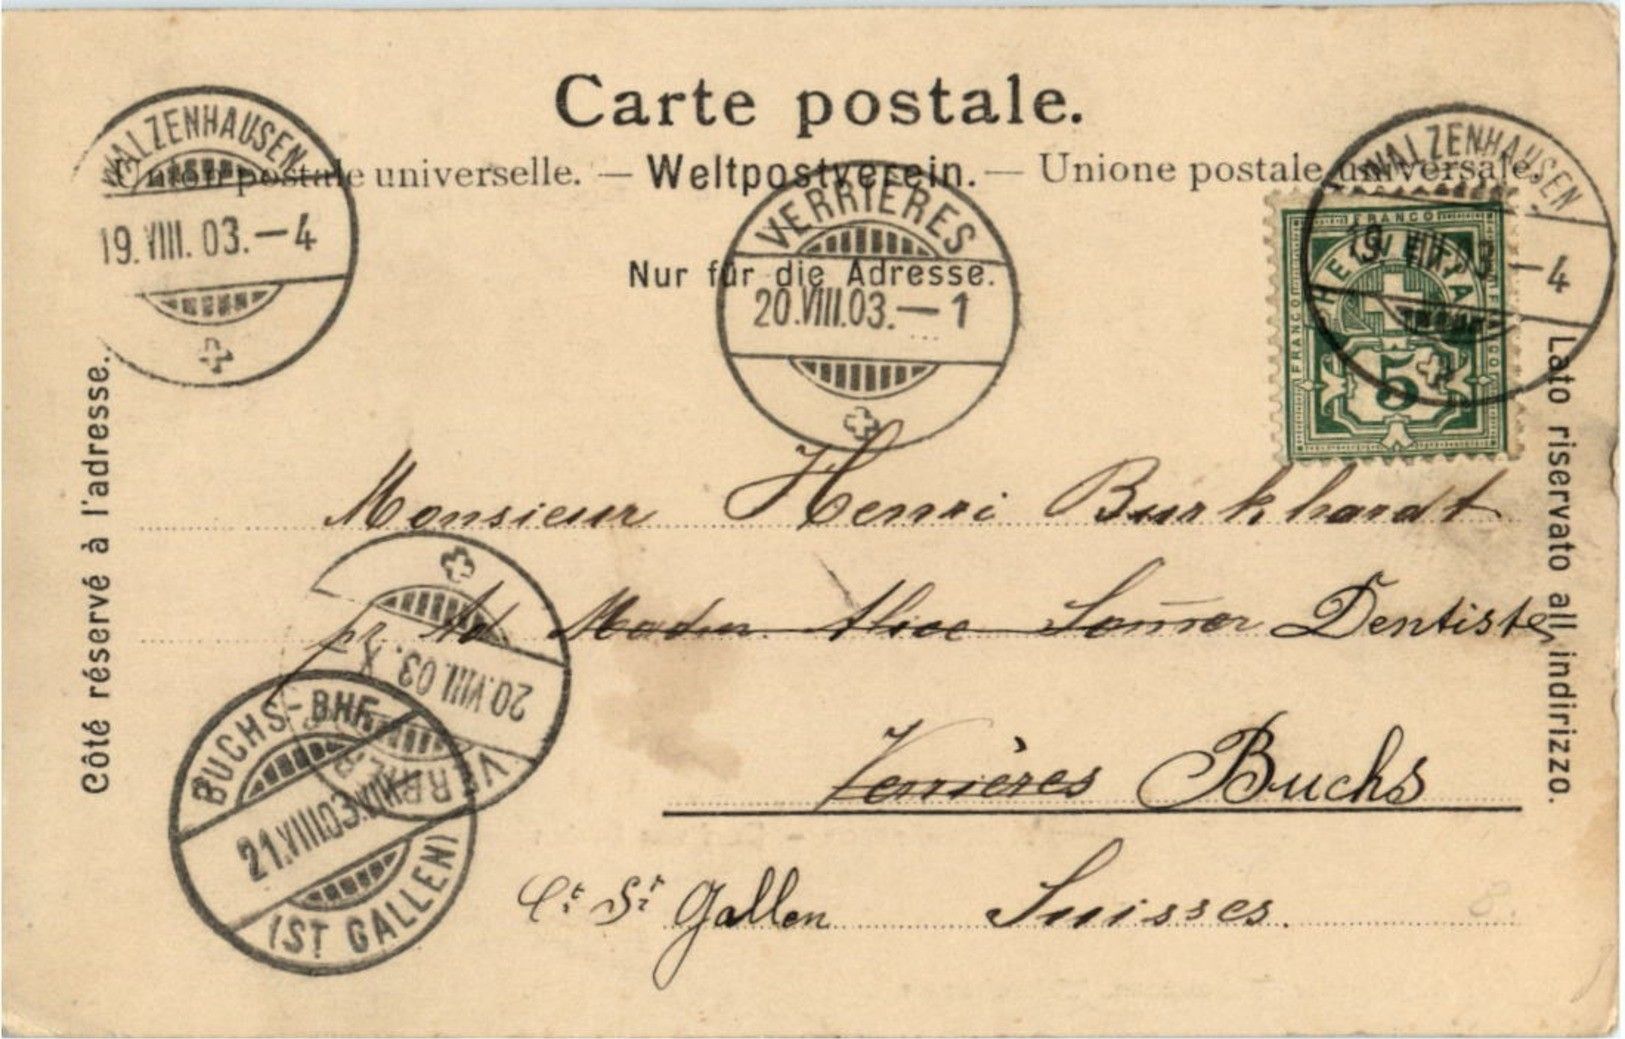 Carte postale.
Union postale universelle. — Weltpostverein. — Unione postale universale.
Nur für die Adresse.
Côté réservé à l'adresse.
Lato riservato all indirizzo.
WALZENHAUSEN
19.VIII.03.–4
VERRIÈRES
20.VIII.03.–1
WALZENHAUSEN
19.VIII.03.–4
FRANCO
HELVETIA
FRANCO
FRANCO
5
Monsieur Henri Burkhardt
pr. Ad Madm. Alice Dentiste
Verrières Buchs
Ct. St. Gallen Suisses.
20.VIII.03.X
BUCHS-BHF.
21.VIII.03.
(ST GALLEN)